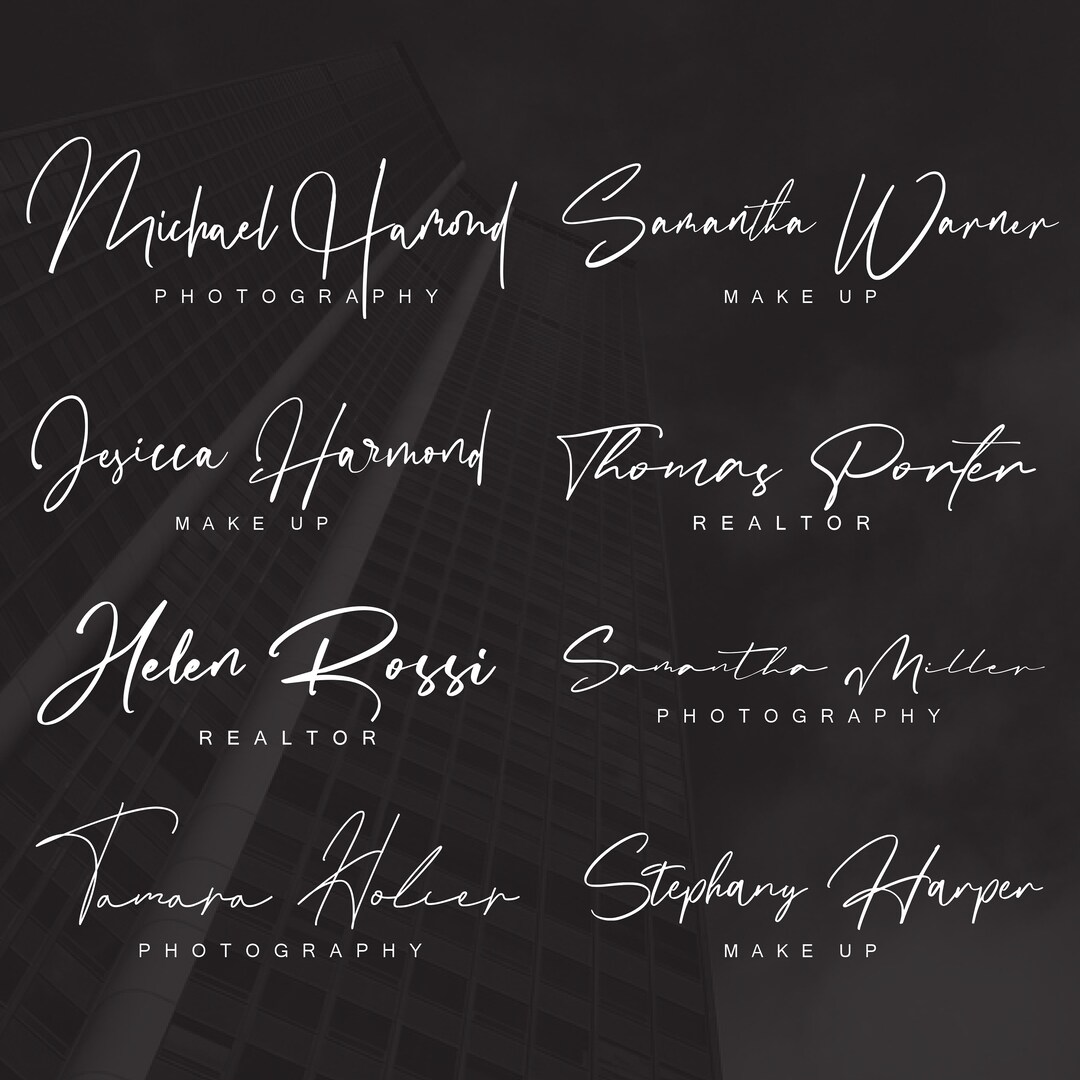 Michael Hamond
PHOTOGRAPHY
Samantha Warner
MAKE UP
Jesicca Harmond
MAKE UP
Thomas Porter
REALTOR
Helen Rossi
REALTOR
Samantha Miller
PHOTOGRAPHY
Tamara Holcer
PHOTOGRAPHY
Stephany Harper
MAKE UP